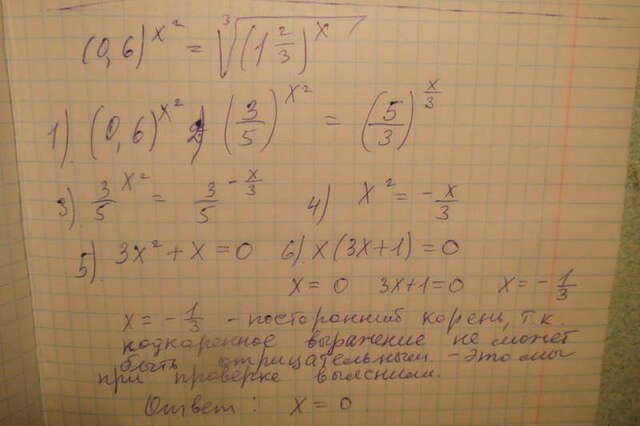 (0,6)^x² = ∛(1 2/3)^x
1). (0,6)^x² 2) (3/5)^x² = (5/3)^x/3
3) 3/5^x² = 3/5^-x/3 4) x² = -x/3
5). 3x² + x = 0 6). x(3x+1) = 0
x = 0 3x+1=0 x = -1/3
x = -1/3 - посторонний корень, т.к.
подкоренное выражение не может
быть отрицательным. - это мы
при проверке выяснили.
Ответ: x = 0